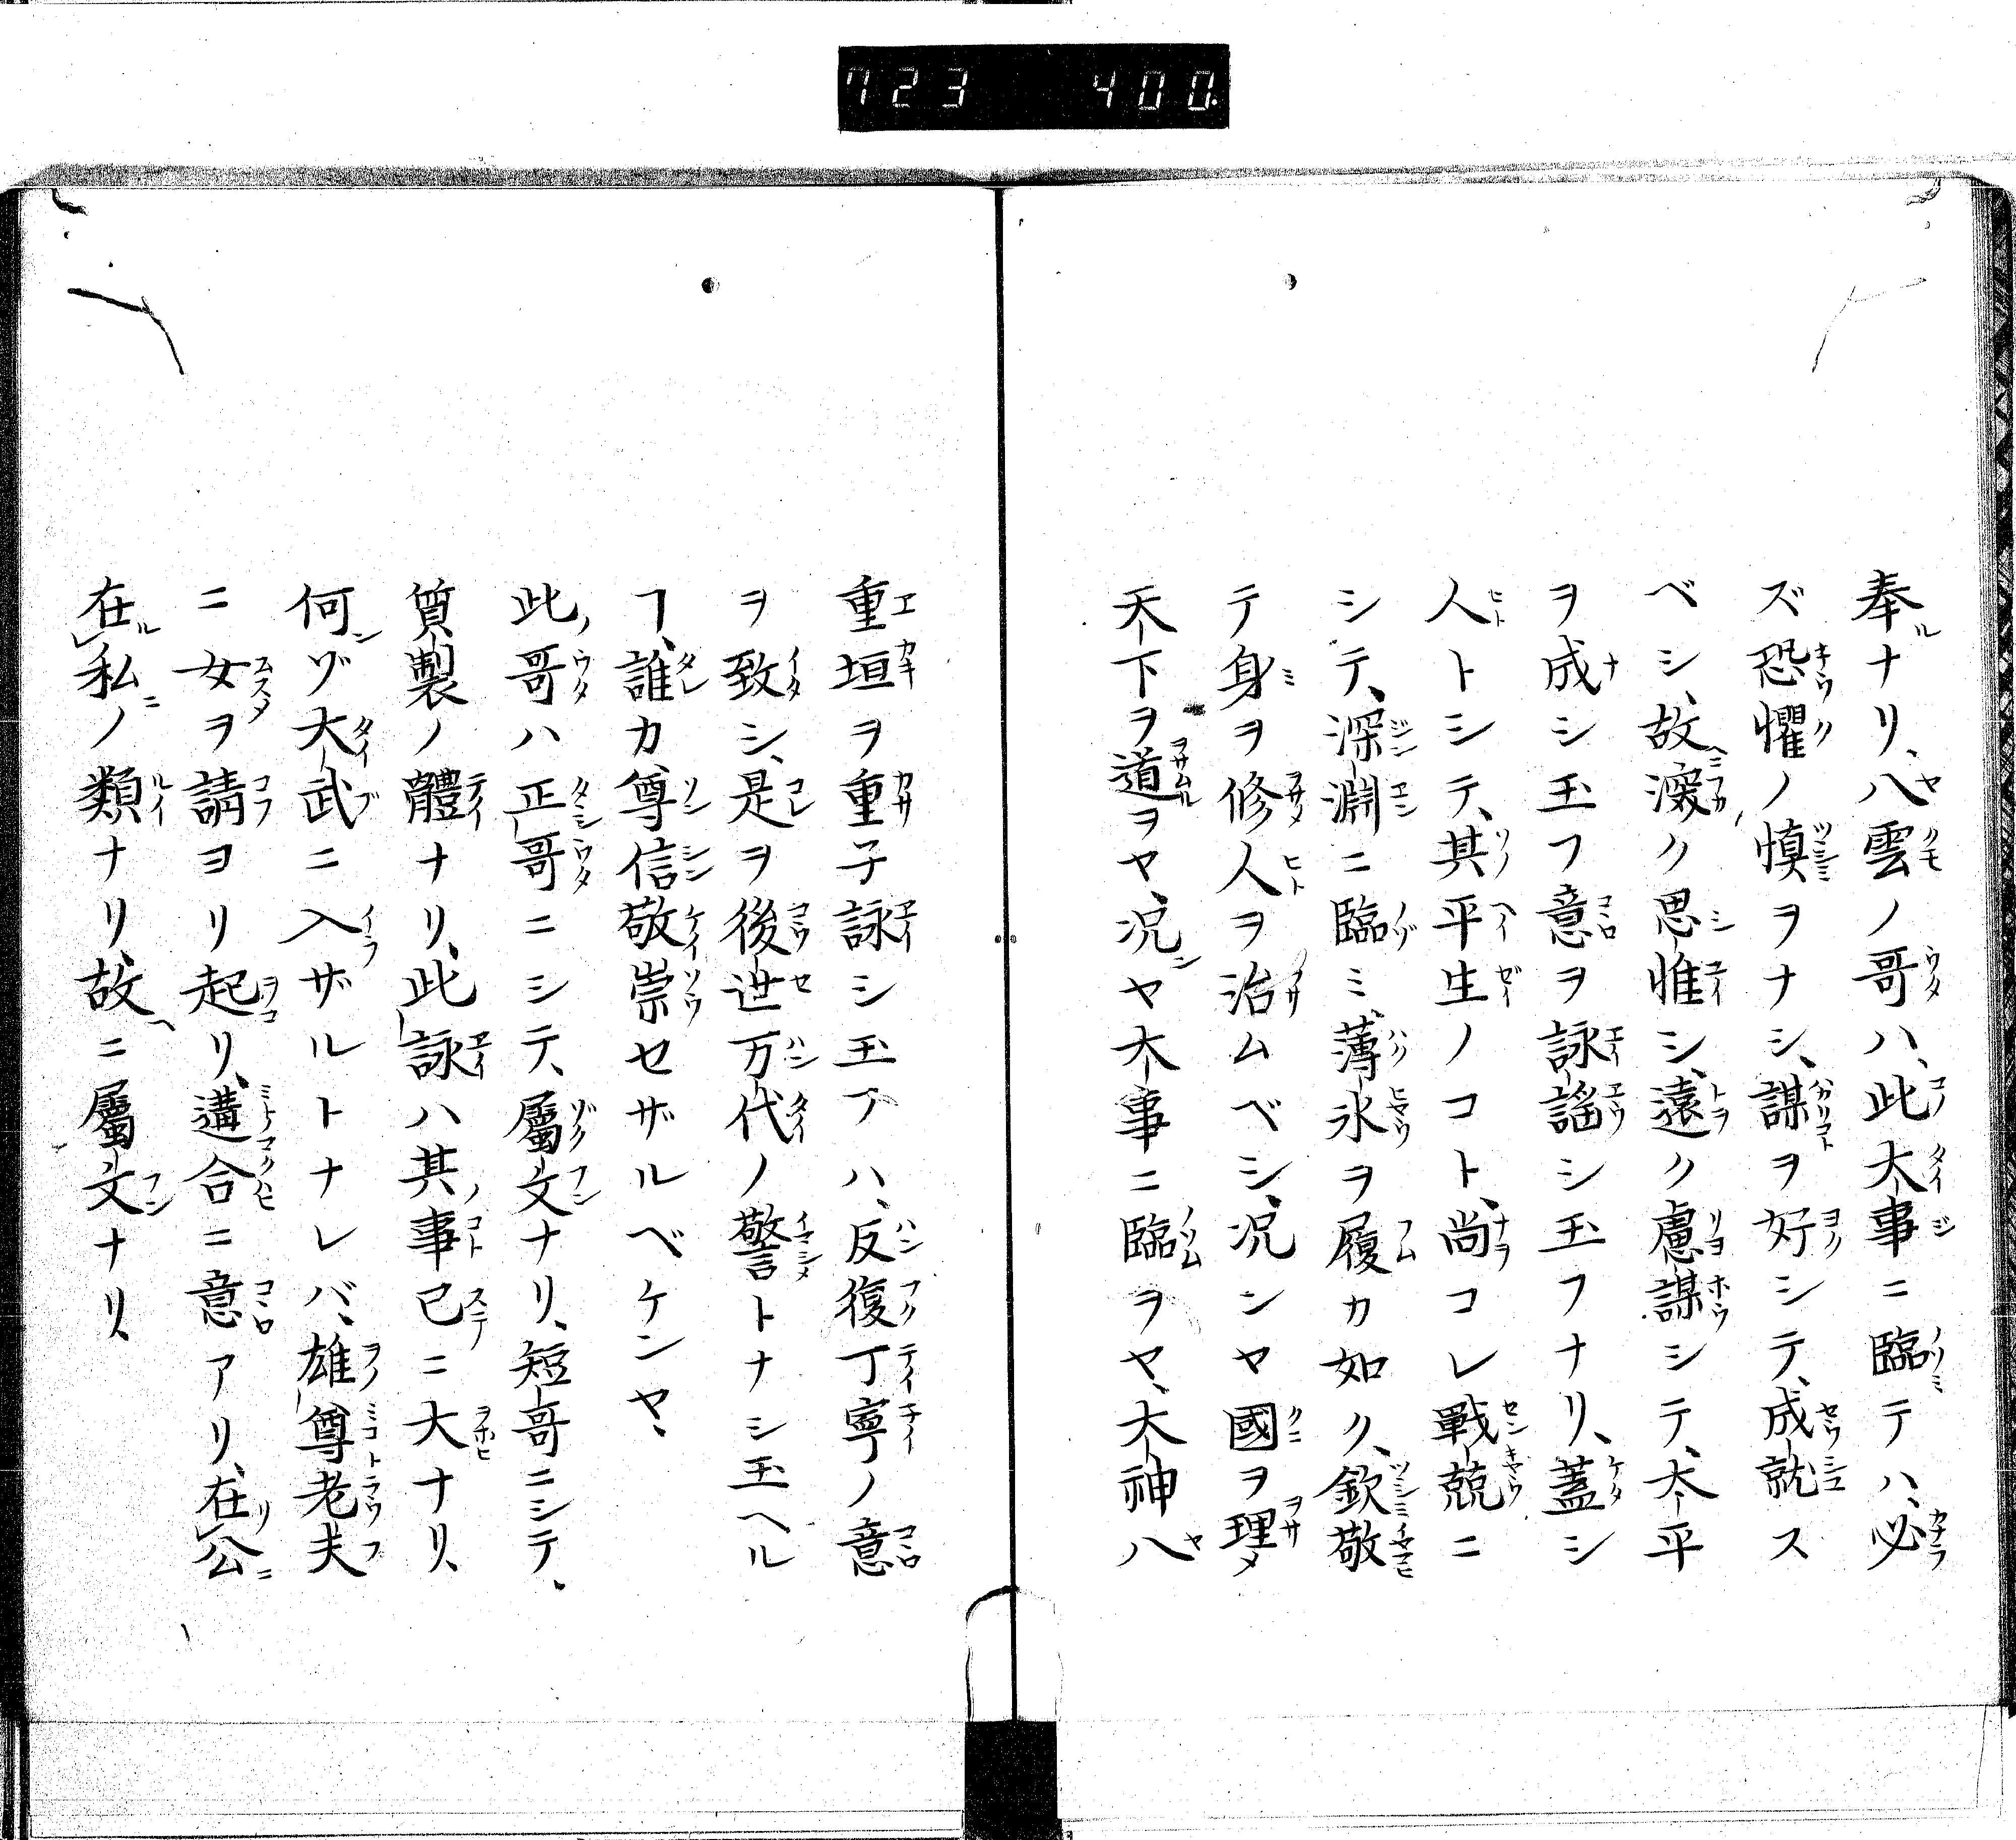 723 400
奉ナリ、八雲ノ哥ハ、此大事ニ臨テハ、必
ズ恐懼ノ慎ヲナシ、謀ヲ好シテ、成就ス
ベシ、故深ク思惟シ、遠ク慮謀シテ、太平
ヲ成シ玉フ意ヲ詠謡シ玉フナリ、蓋シ
人トシテ、其平生ノコト、尚コレ戰兢ニ
シテ、深淵ニ臨ミ、薄氷ヲ履カ如ク、欽敬
テ身ヲ修人ヲ治ムベシ、况ンヤ國ヲ理
天下ヲ道ヲヤ、况ヤ大事ニ臨ヲヤ、大神八
重垣ヲ重子詠シ玉フハ、反復丁寧ノ意
ヲ致シ、是ヲ後世万代ノ警トナシ玉ヘル
ヿ、誰カ尊信敬崇セザルベケンヤ、
此哥ハ正哥ニシテ、屬文ナリ、短哥ニシテ、
質製ノ體ナリ、此詠ハ其事已ニ大ナリ、
何ゾ大武ニ入ザルトナレバ、雄尊老夫
ニ女ヲ請ヨリ起リ、遘合ニ意アリ、在公
在私ノ類ナリ、故ニ屬文ナリ、